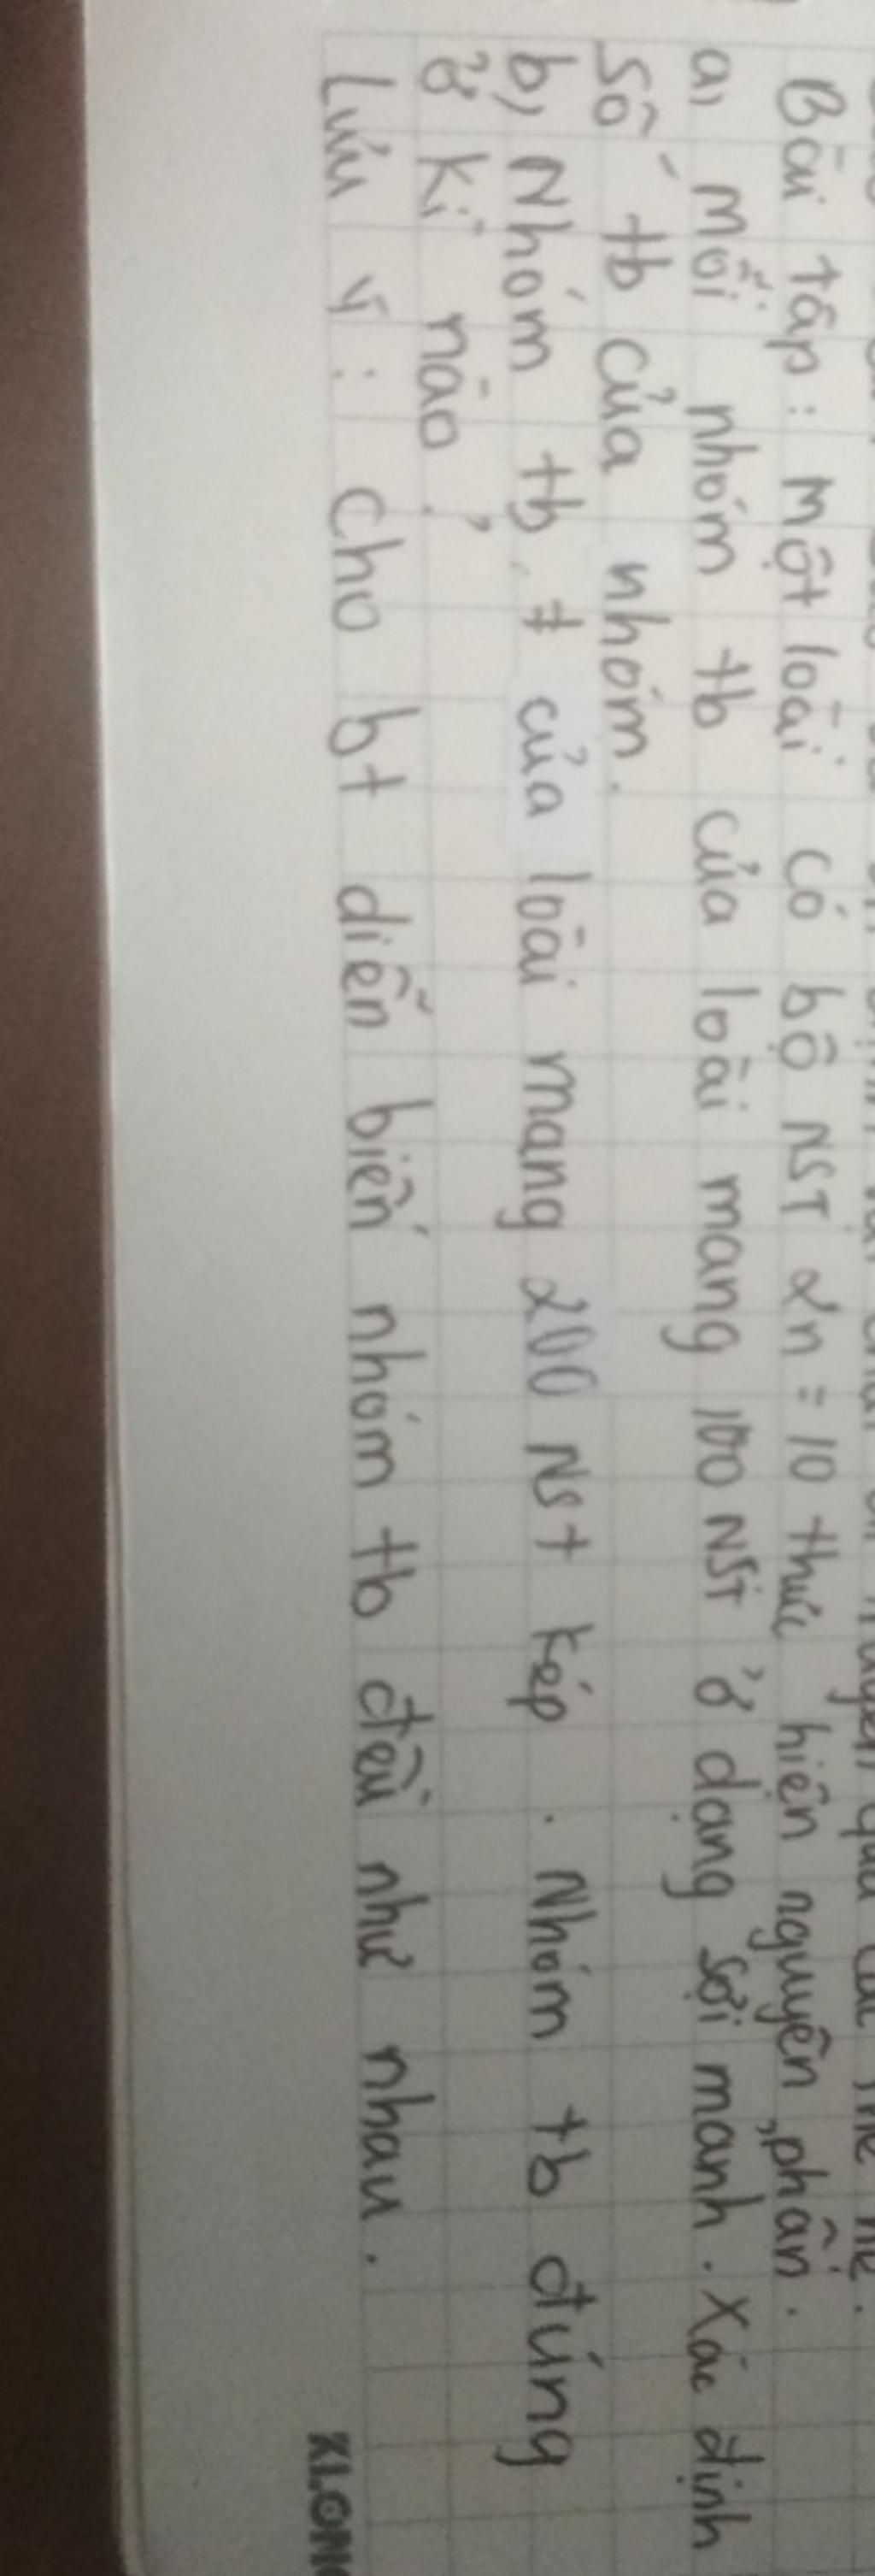 Bài tập: Một loài có bộ NST 2n = 10 thực hiện nguyên phân.
a, Mỗi nhóm tb của loài mang 100 NST ở dạng sợi mảnh. Xác định
số tb của nhóm.
b, Nhóm tb ≠ của loài mang 200 NST kép. Nhóm tb đúng
ở kì nào?
Lưu ý: Cho bt diễn biến nhóm tb đều như nhau.
KLONG